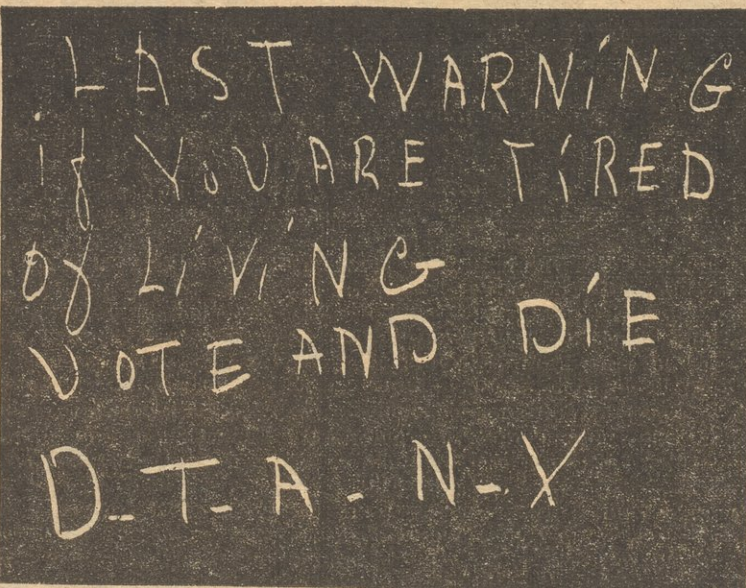 LAST WARNiNG
if YOU ARE TiRED
of LiViNG
VOTE AND DiE
D-T-A-N-X